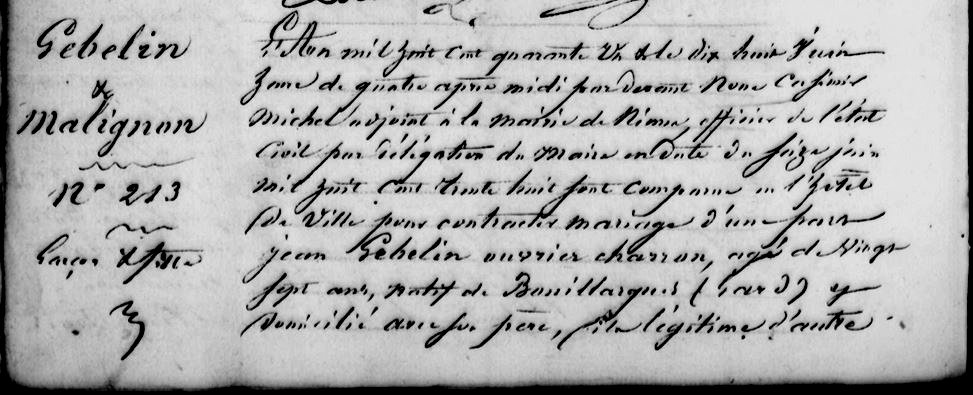 Gebelin
&
Malignon
N° 213
Garçon & fille
L'An mil huit cent quarante Un & le dix huit Juin
heure de quatre après midi par devant Nous Casimir
Michel adjoint à la mairie de Nimes, officier de l'état
Civil par délégation du Maire en date du seize juin
mil huit cent trente huit sont comparus en l'hotel
de Ville pour contracter mariage d'une part
jean Gebelin ouvrier charron, agé de vingt
sept ans, natif de Bouillargues (Gard) y
domicilié avec son père, fils légitime d'autre